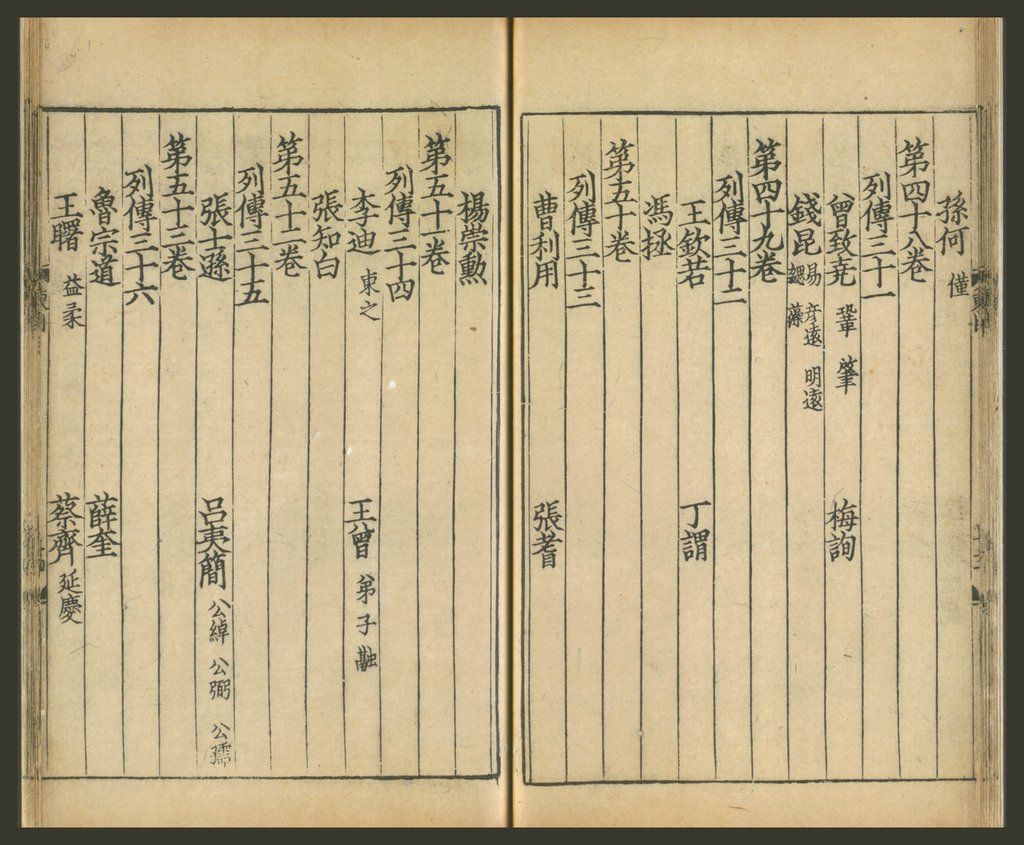 孫何 僅
第四十八卷
列傳三十一
曾致堯 鞏 肇 梅詢
錢昆 易 彥遠 明逸 勰 藻
第四十九卷
列傳三十二
王欽若 丁謂
馮拯
第五十卷
列傳三十三
曹利用 張耆
楊崇勳
第五十一卷
列傳三十四
李迪 東之 王曾 弟子融
張知白
第五十二卷
列傳三十五
張士遜 呂夷簡 公綽 公弼 公孺
第五十三卷
列傳三十六
魯宗道 薛奎
王曙 益柔 蔡齊 延慶